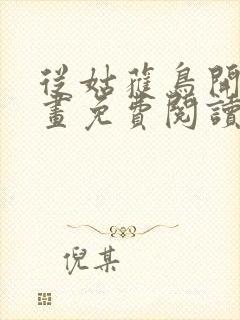 從姑獲鳥開
畫免費閱讀
倪某